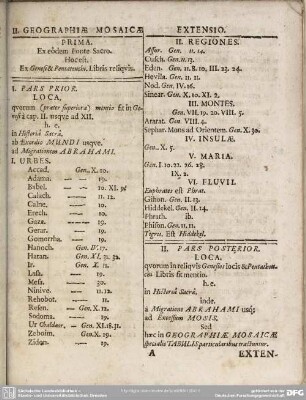 II. GEOGRAPHIÆ MOSAICÆ
PRIMA.
Ex eôdem Fonte Sacro.
Hoc est,
Ex Genesi & Pentateuch. Libris reliqvis.
I. PARS PRIOR.
LOCA,
qvorum (præter superiora) mentio fit in Ge-
nesi à cap. II. usqve ad XII.
h. e.
in Historiâ Sacrâ,
ab Exordio MUNDI usqve
ad Migrationem ABRAHAMI.
I. URBES.
Accad. Gen. X. 10.
Adama. 19.
Babel. 10. XI. 9.
Calach. 11. 12.
Calne. 10.
Erech. 10.
Gaza. 19.
Gerar. 19.
Gomorrha. 19.
Hanoch. Gen. IV. 17.
Haran. Gen. XI. 31. 32.
Ir. Gen. X. 11.
Lesa. 19.
Mesa. 30.
Ninive. 11. 12.
Rehobot. 11.
Resen. Gen. X. 12.
Sodoma. 19.
Ur Chaldæor. Gen. XI. 28. 31.
Zeboim. Gen. X. 19.
Zidon. 19.
EXTENSIO.
II. REGIONES.
Assur. Gen. II. 14.
Cusch. Gen. II. 13.
Eden. Gen. II. 8. 10. III. 23. 24.
Hevila. Gen. II. 11.
Nod. Gen. IV. 16.
Sinear. Gen. X. 10. XI. 2.
III. MONTES.
Gen. VII. 19. 20. VIII. 5.
Ararat. Gen. VIII. 4.
Sephar, Mons ad Orientem. Gen. X. 30.
IV. INSULÆ.
Gen. X. 5.
V. MARIA.
Gen. I. 10. 22. 26. 28.
IX. 2.
VI. FLUVII.
Euphrates est Phrat.
Gihon. Gen. II. 13.
Hiddekel. Gen. II. 14.
Phrath. ib.
Phison. Gen. II. 11.
Tigris. Est Hiddekel.
II. PARS POSTERIOR.
LOCA,
qvorum in reliqvis Geneseos locis & Pentateuchi
Libris fit mentio.
h. e.
in Historiâ Sacrâ,
inde
à Migratione ABRAHAMI usqve
ad Excessum MOSIS.
Sed
hæc in GEOGRAPHIÆ MOSAICÆ
specialis TABULIS particularibus traduntur.
A EXTEN-